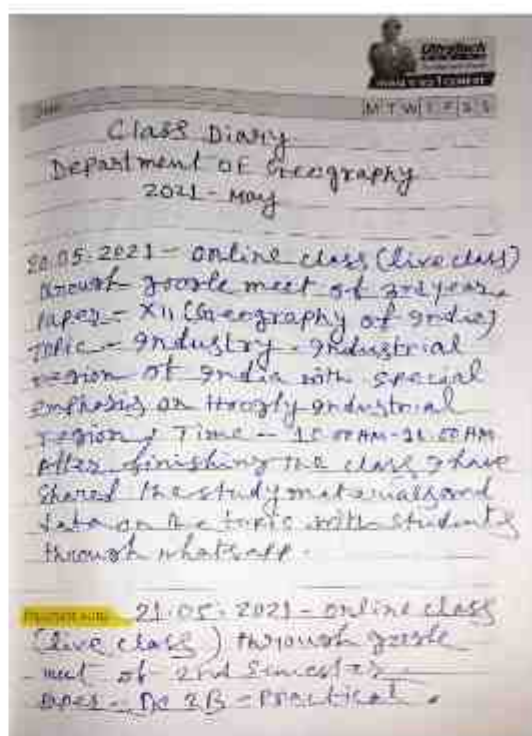 UltraTech
M T W T F S S
Class Diary
Department of Geography
2021 - May
20.05.2021 - online class (live class)
through google meet of 3rd year.
Paper - XII (Geography of India)
Topic - Industry. Industrial
region of India with special
emphasis on Hoogly industrial
region, Time - 10.00AM-11.00AM
After finishing the class I have
shared the study materials and
data on the topic with students
through whatsapp.
21.05.2021 - online class
(live class) through google
meet of 2nd Semester
Paper - 2B - Practical.